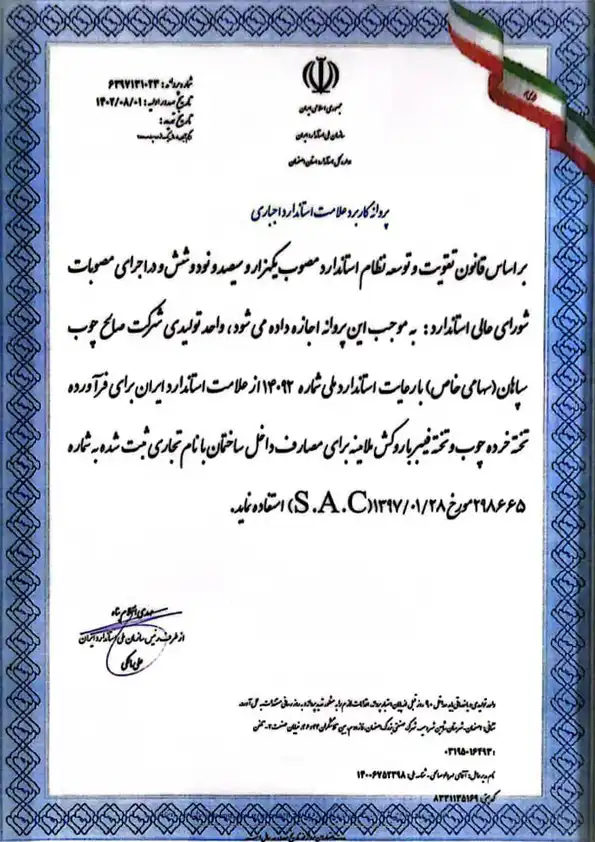 شماره پروانه: ۶۳۹۷۱۳۱۰۲۳
تاریخ صدور اولیه: ۱۴۰۲/۰۸/۰۱
تاریخ تمدید:
جمهوری اسلامی ایران
سازمان ملی استاندارد ایران
اداره کل استاندارد استان اصفهان
پروانه کاربرد علامت استاندارد اجباری
بر اساس قانون تقویت و توسعه نظام استاندارد مصوب یکهزار و سیصد و نود و شش و در اجرای مصوبات
شورای عالی استاندارد: به موجب این پروانه اجازه داده می شود، واحد تولیدی شرکت صالح چوب
سپاهان(سهامی خاص) با رعایت استاندارد ملی شماره ۱۴۰۹۲ از علامت استاندارد ایران برای فرآورده
تخته خرده چوب و تخته فیبر با روکش ملامینه برای مصارف داخل ساختمان با نام تجاری ثبت شده به شماره
۲۹۸۶۶۵ مورخ ۱۳۹۷/۰۱/۲۸(S.A.C) استفاده نماید.
از طرف رئیس سازمان ملی استاندارد ایران
۰۳۱۹۵-۱۶۴۹۳:
شناسه ملی: ۱۴۰۰۶۷۵۲۳۹۸
کد پستی: ۸۳۳۱۱۳۵۱۶۹